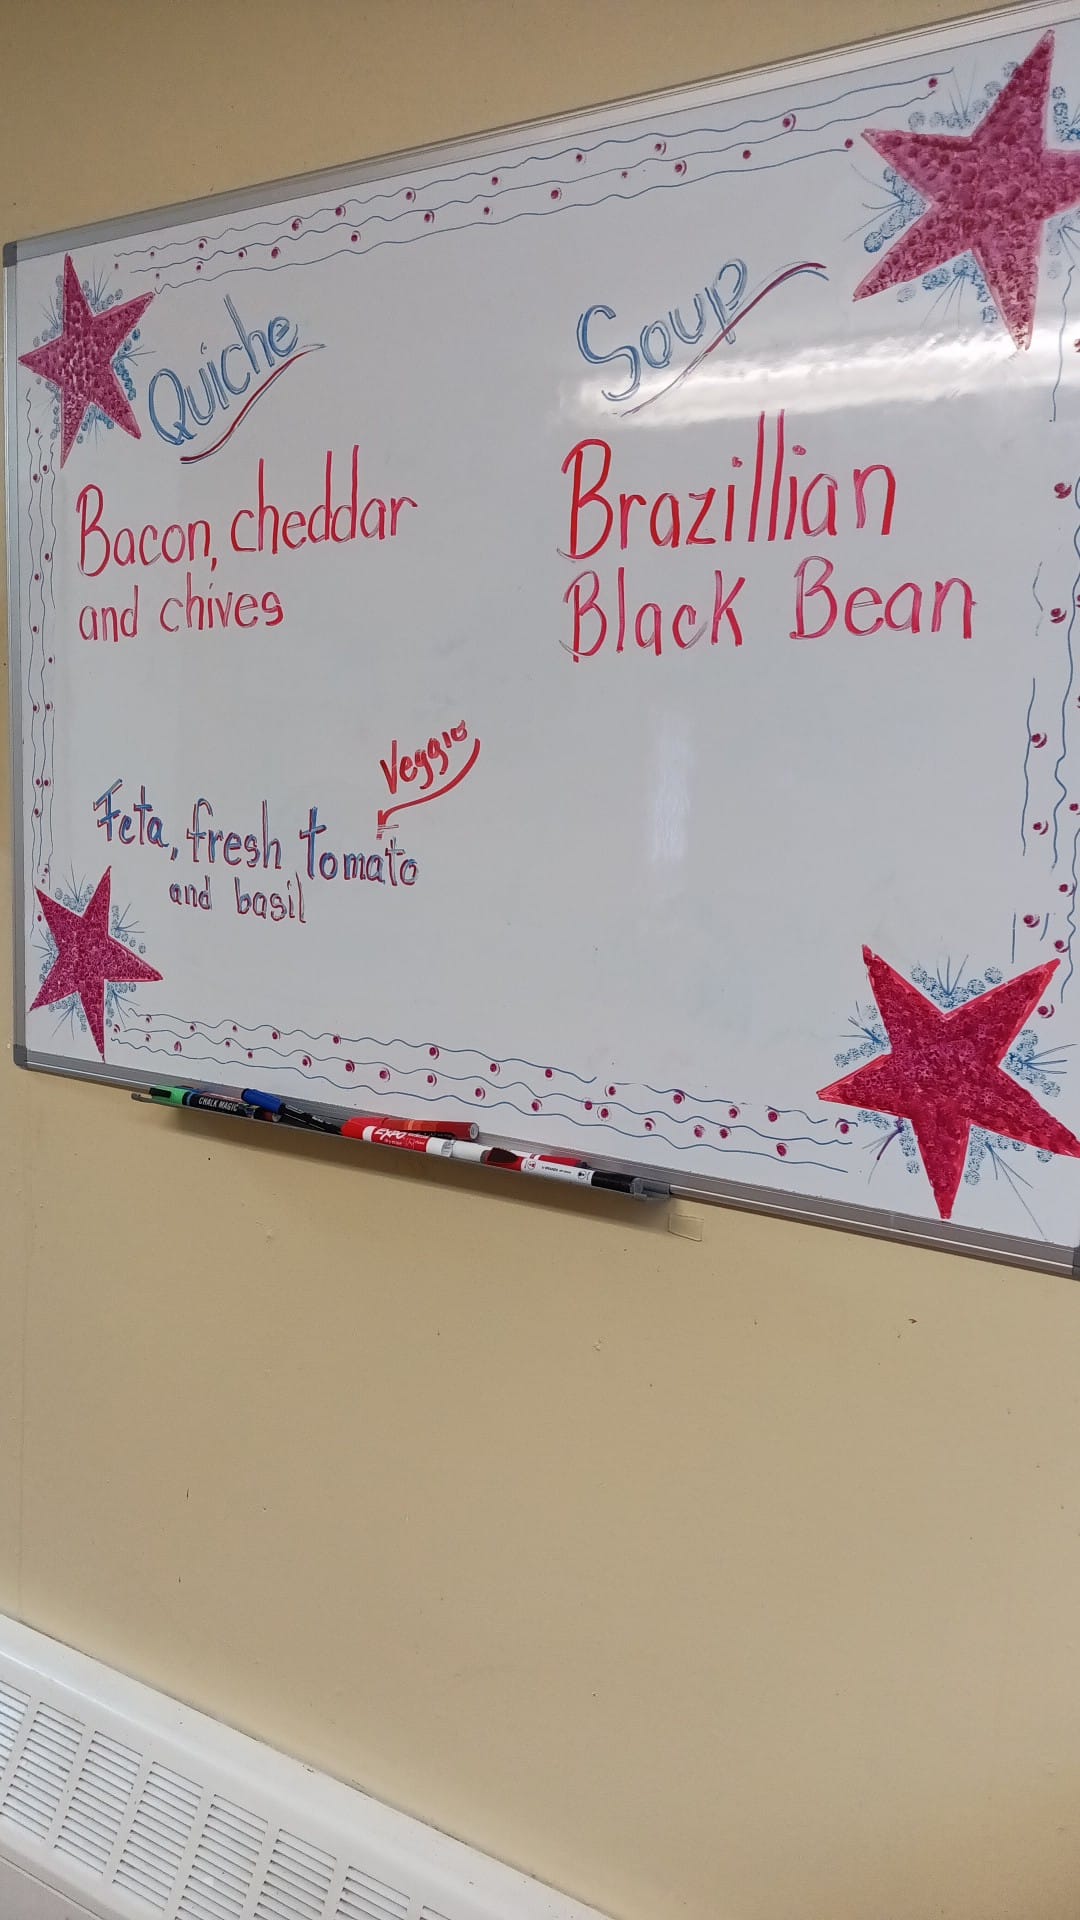 Quiche
Bacon, cheddar
and chives
Veggie
Feta, fresh tomato
and basil
Soup
Brazillian
Black Bean
CHALK MAGIC
EXPO